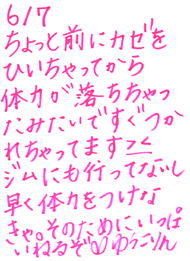 6/7
ちょっと前にカゼを
ひいちゃってから
体力が落ちちゃっ
たみたいですぐつか
れちゃってます><
ジムにも行ってないし
早く体力をつけな
きゃ。そのためにいっぱ
いねるぞ♡ゆうこりん